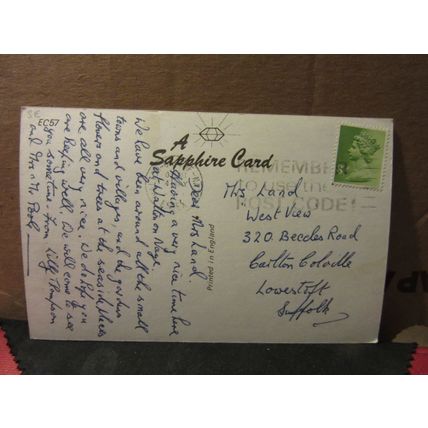 SE
EC57
A
Sapphire Card
Printed in England
REMEMBER
to use the
POSTCODE!
Dear Mrs Land.
Having a very nice time here
at Walton on Naze.
We have been around all the small
towns and villages, and the gardens
flowers and trees at the seaside places
are all very nice. We do hope you
are keeping well. We will come to see
you sometime. From Lilly Thompson
and Mrs & Mr Pooly
Mrs. Land
West View
320 Beccles Road
Carlton Colville
Lowestoft
Suffolk
AP